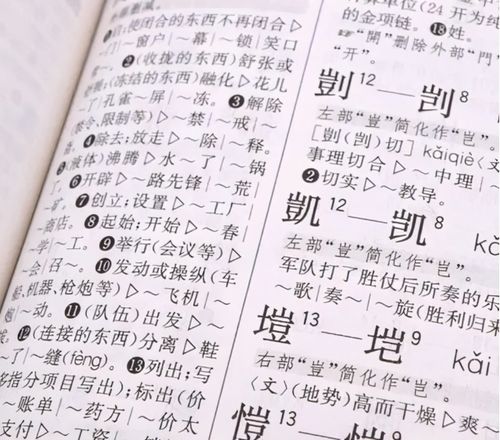 ❶启;使闭合的东西不再闭合▷
~门|~窗户|~幕|~锁|笑口
~。❷(收拢的东西)舒张或
(冻结的东西)融化▷花儿
~了|孔雀~屏|~冻。❸解除
(禁令、限制等)▷~禁|~戒|
❹除去;放走▷~除|~释。
(液体)沸腾▷水~了|~锅
❻开辟▷~路先锋|~荒|
矿。❼创立;设置▷~工厂|
商店。❽起始;开始▷~春|
~学|~工。❾举行(会议等)▷
~会|召~。❿发动或操纵(车
船、机器、枪炮等)▷~飞机|~
炮|~动。⓫(队伍)出发▷~
拔。⓬(连接的东西)分离▷鞋
~了|~缝(fèng)。⓭列出;写
多指分项目写出);标出(价
~账单|~药方|~价太
支付▷~工资|
算单位(24开为纯
的金项链。⓲姓。
“開”删除外部“門”
“开”。
剴12—剀8
左部“豈”简化作“岂”。
[剴(剀)切]kǎiqiè〈文
事理切合▷~中理|~
❷切实▷~教导。
凱12—凯8
左部“豈”简化作“岂”。
军队打了胜仗后所奏的乐
~歌|奏~|~旋(胜利归来
塏13—垲9 kǎi
右部“豈”简化作“岂”。
〈文〉(地势)高而干燥▷爽~
愷13—恺9 kǎ